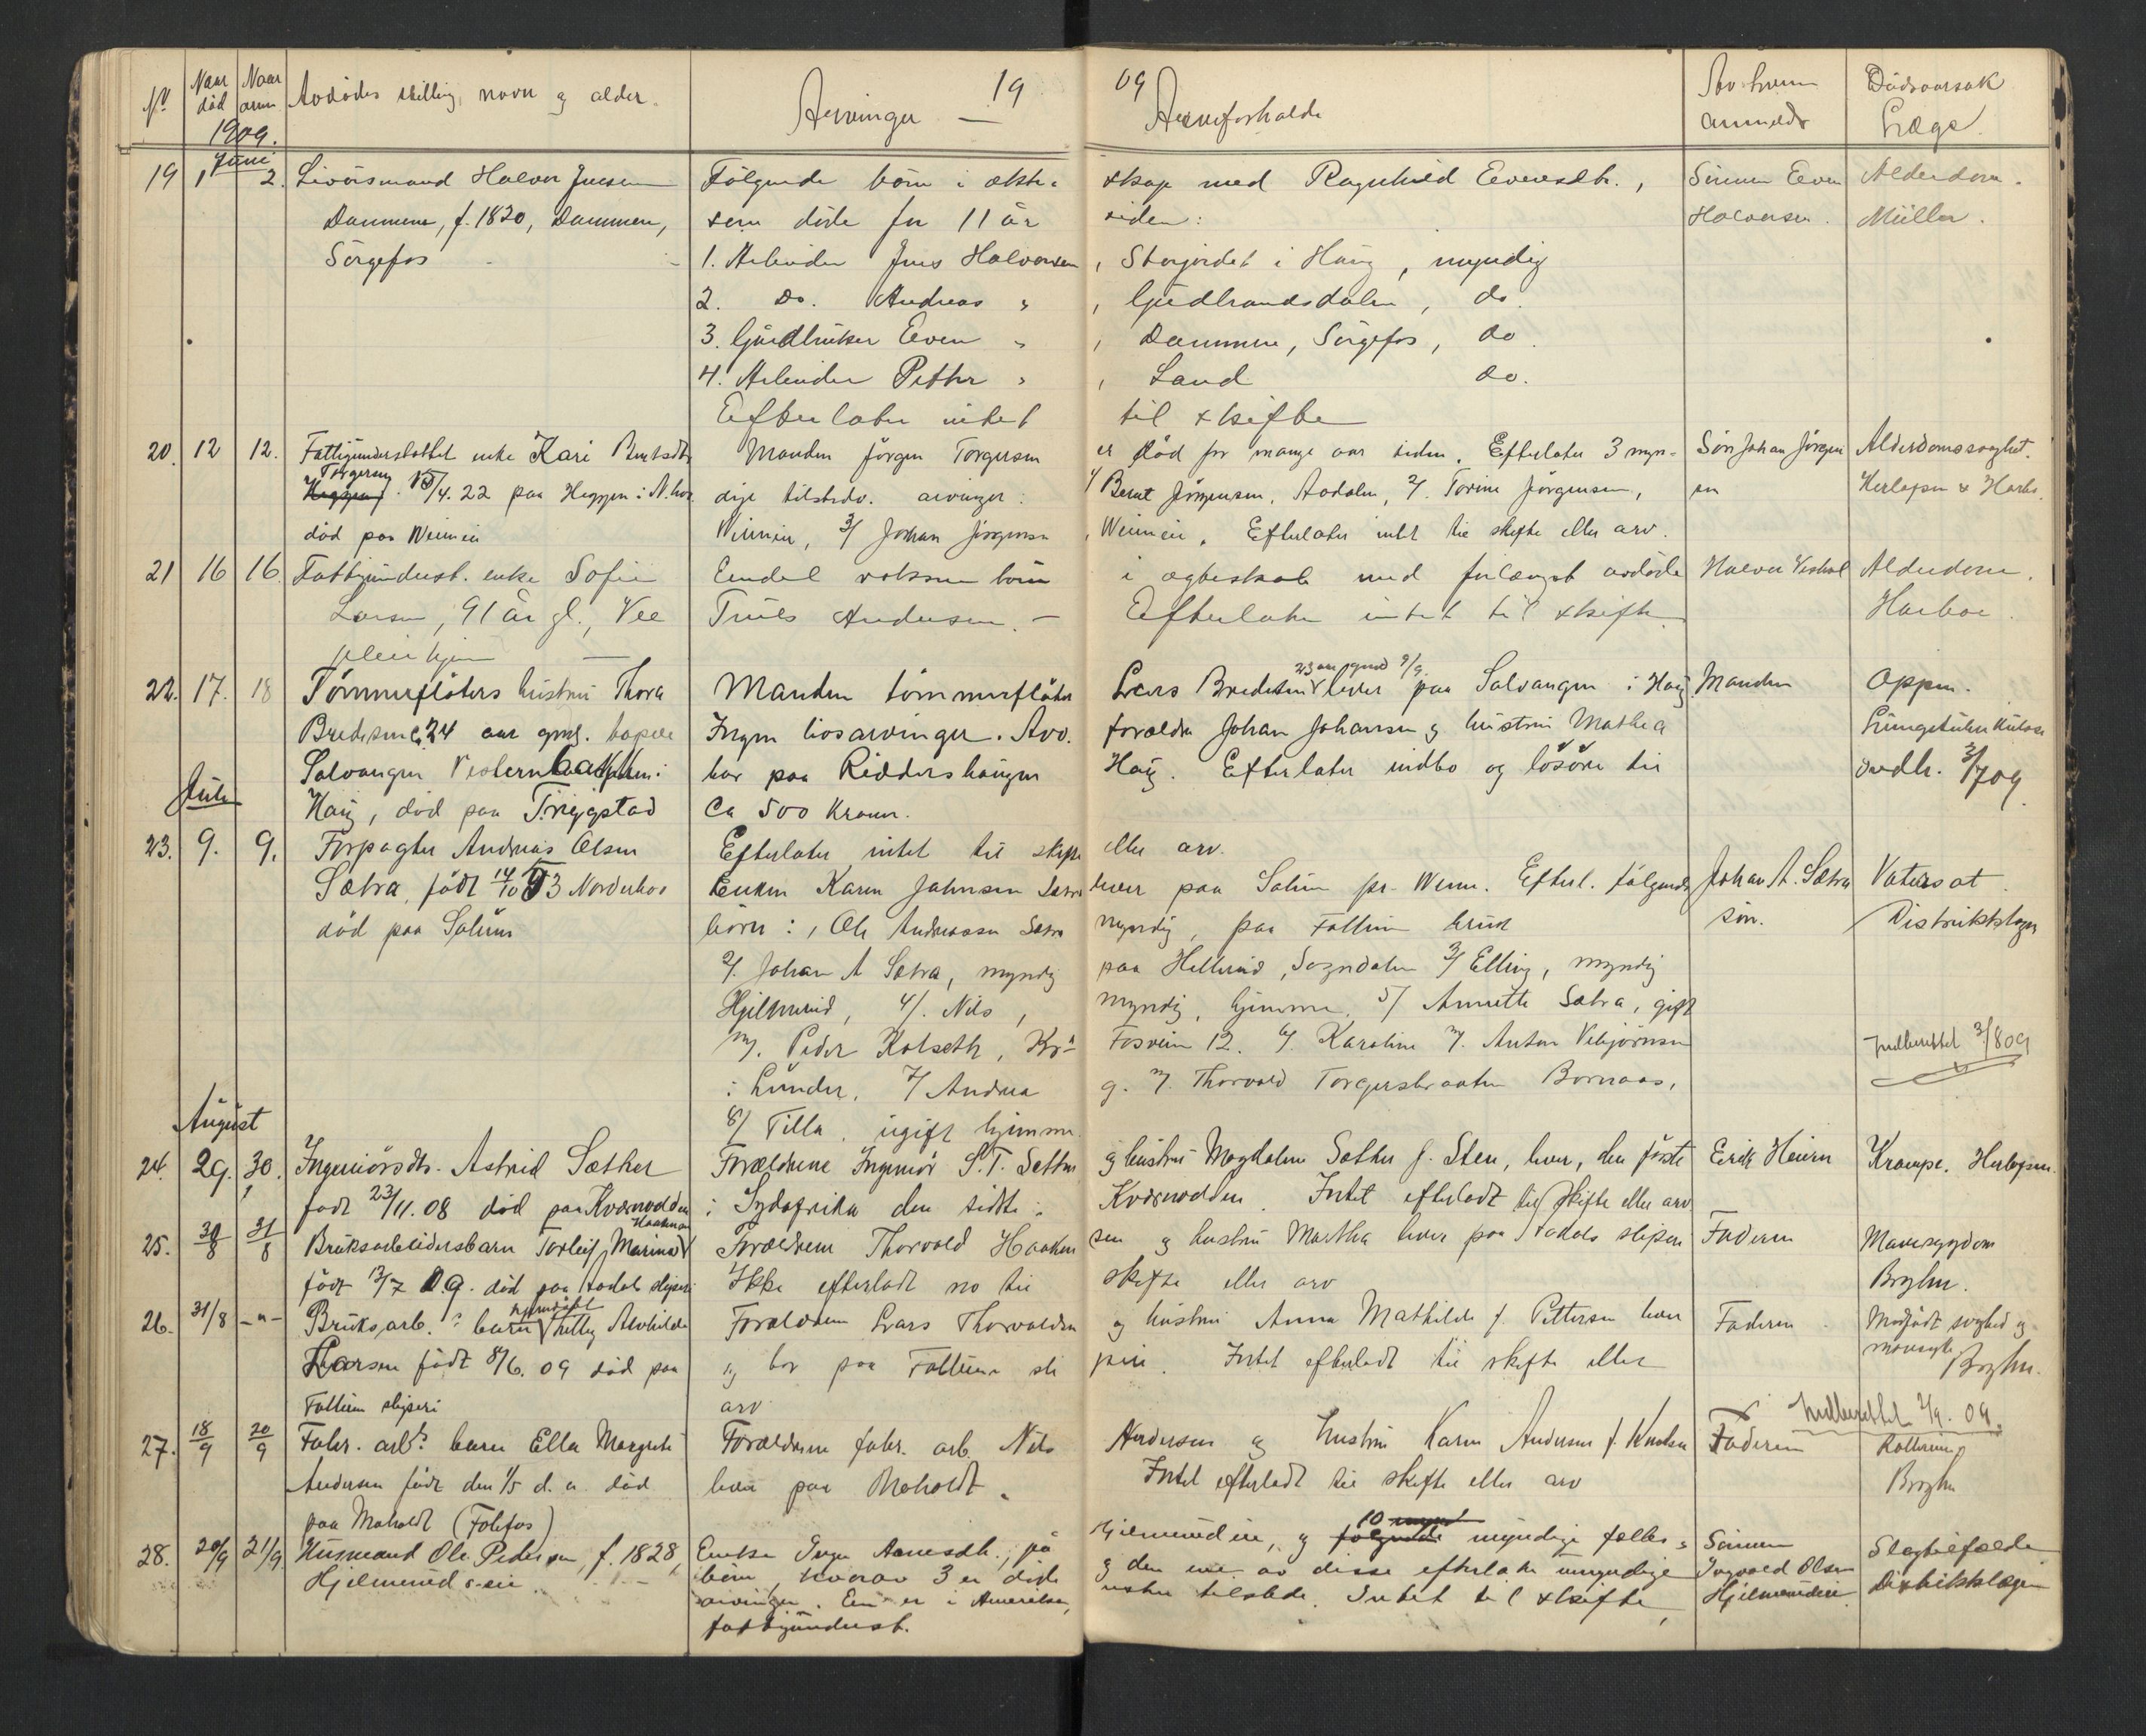 No. Naar død Naar anm Avdødes stilling, navn og alder. Arvinger — 19 09 Arveforholde Av hvem anmeldt Dødsaarsak Læge.
1909.
Juni
19 1 2. Livörsmand Halvor Jensen Følgende börn i ekte- skap med Ragnhild Evensdtr., Sönnen Even Alderdom.
Dammene, f. 1820, Dammen, som døde for 11 år siden: Halvorsen. Müller.
Sørgefos 1. Arbeider Jens Halvorsen, Storjordet i Haug, myndig
2. Do. Andreas " , Gudbrandsdalen, do.
3. Gårdbruker Even " , Dammene, Sörgefos, do.
4. Arbeider Petter " , Land do.
Efterlater intet til skifte
20. 12 12. Fattigunderstøttet enke Kari Berntsdtr Manden Jørgen Torgersen er død for mange aar siden. Efterlater 3 myn- Søn Johan Jörgen Alderdomssvaghet.
Torgersen 15/4. 22 paa Heggen i N.hov. dige tilstedv. arvinger: 1/ Bernt Jörgensen, Aadalen, 2/. Torine Jörgensen, sen
død paa Weimeie Weimeie, 3/ Johan Jörgensen, Weimeie. Efterlater intet til skifte eller arv.
21 16 16. Fattigunderst. enke Sofie Eendel voksne börn i ægteskab med forlængst avdøde Halvor Alderdom.
Larsen, 91 år gl., Vee Truls Andersen. — Efterlater intet til skifte Harboe.
pleiehjem —
22. 17. 18 Tömmerfløters hustru Thora Manden tømmerfløter Lars Bredesen 23 aar gml 9/9. lever paa Solvangen i Haug Manden Oppen.
Bredesen 24 aar gml. Ingen livsarvinger. Avd. forældre Johan Johansen og hustru Mathea Lungetuberkulose
Solvangen Vesternbakken i bor paa Riddershaugen Haug. Efterlater indbo og løsøre til indb. 3/7 09.
Juli
Haug, død paa Tryggstad Ca 500 Kroner.
23. 9. 9. Forpagter Andreas Olsen Efterlater intet til skifte eller arv.
Sætra, født 14/10 53 Norderhov Enken Karen Johnsen Sætra lever paa Solum pr. Weme. Efterl. følgende Johan A. Sætra Vatersot.
død paa Solum börn: 1, Ole Andreassen Sætra myndig, paa Follum bruk søn. Distriktslægen
2/. Johan A Sætra, myndig paa Hellerud, Sogndalen 3/ Elling, myndig
Hjelmerud, 4/. Nils, myndig, hjemme, 5/ Annette Sætra, gift
m/. Peder Kolseth, Kr.a Fosveien 12. 6/. Karoline m/. Anton Vebjørnsen Indberettet 3/8 09
i Lunder, 7/ Andrea g. m/. Thorvald Torgersbraaten Bornaas,
August
8/ Tilla, ugift hjemme.
24. 29. 30. Ingeniörsdtr. Astrid Sæther Forældrene Ingeniør S. T. Sether og hustru Magdalene Sæther f. Sten, lever, den første Erik Heiern Krampe. Herlofsen.
født 23/11. 08 død paa Kværnodden i Sydafrika den sidste i Kværnodden. Intet efterladt til skifte eller arv
25. 30/8 31/8 Bruksarbeidersbarn Torleif Marius Haakensen Forældrene Thorvald Haaken sen og hustru Martha lever paa Aadals sliperi Faderen Mavesygdom
født 13/7 09. død paa Aadals sliperi Ikke efterladt no til skifte eller arv Bryhn.
26. 31/8 —"— Bruksarb.s barn hjemdøpt Helly Alvhilde Forældrene Lars Thorvaldsen og hustru Anna Mathilde f. Pettersen lever Faderen Medfødt svaghed og
Larsen født 8/6. 09 død paa og bor paa Follum sli peri. Intet efterladt til skifte eller mavesyk Bryhn.
Follum sliperi arv Indberettet 2/9. 09.
27. 18/9 20/9 Fabr. arb.s barn Ella Margrete Forældrene fabr. arb. Nils Andersen og hustru Karen Andersen f. Knudsen Faderen
Andersen født den 1/5 d. a. død lever paa Moholdt. Intet efterladt til skifte eller arv Bryhn
paa Moholdt (Follfos)
28. 20/9 21/9. Husmand Ole Pedersen, f. 1828, Enke Inga Arnesdtr., på Hjelmerudeie, og 10 myndige fælles- Sönnen Slagtilfælde
Hjelmerud-eie börn, hvorav 3 er døde og den ene av disse efterlater umyndige Ingvald Olsen Distriktslægen
arvinger. En er i Amerika, tilstede. Intet til skifte, Hjelmerudeie.
fattigunderst.